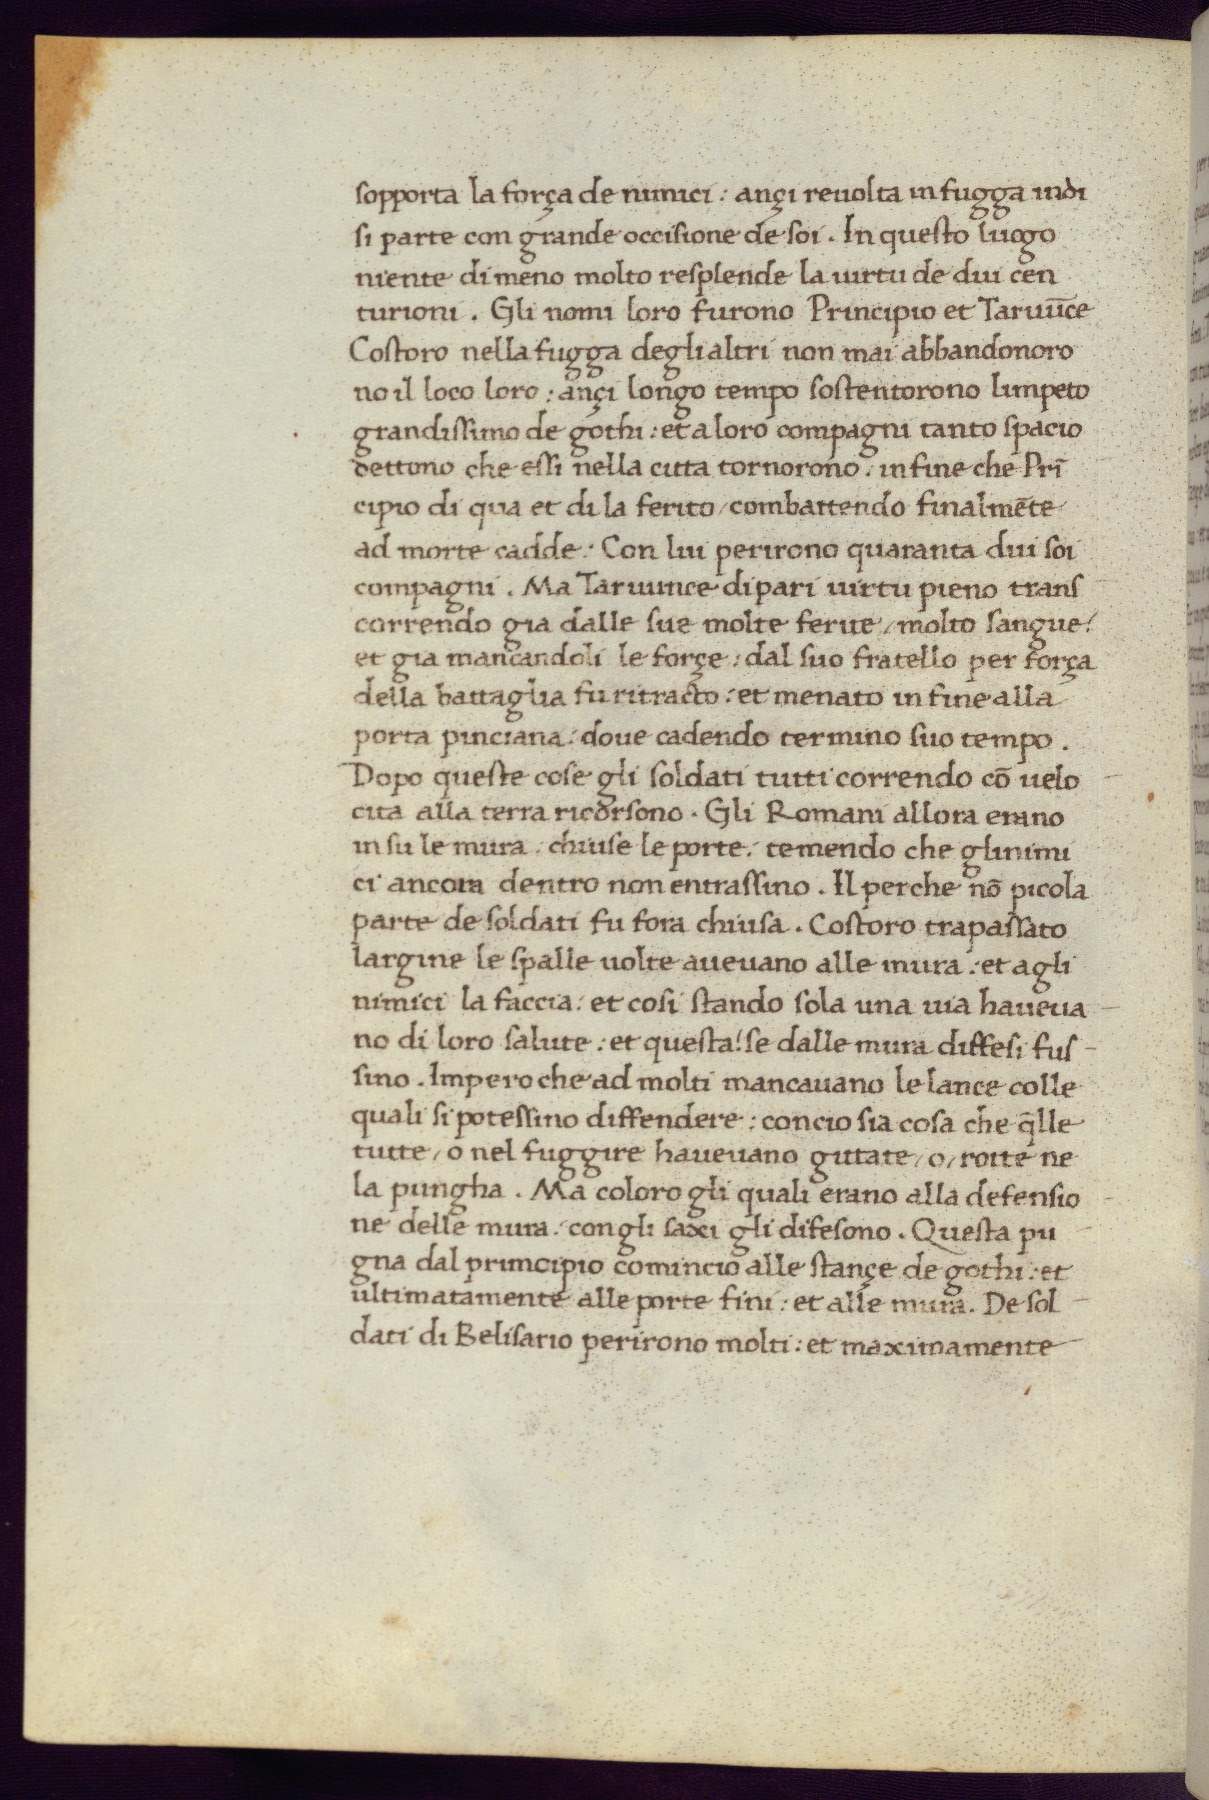 sopporta la força de nimici : ançi reuolta in fugga indi
si parte con grande occisione de soi . In questo luogo
niente di meno molto resplende la uirtu de dui cen
turioni . Gli nomi loro furono Principio et Taruūce
Costoro nella fugga degli altri non mai abbandonoro
no il loco loro : ançi longo tempo sostentorono limpeto
grandissimo de gothi : et a loro compagni tanto spacio
dettono che essi nella citta tornorono . in fine che Prī
cipio di qua et di la ferito / combattendo finalmēte
ad morte cadde : Con lui perirono quaranta dui soi
compagni . Ma Taruunce di pari uirtu pieno trans
correndo gia dalle sue molte ferite / molto sangue :
et gia mancandoli le forçe : dal suo fratello per força
della battaglia fu ritracto : et menato in fine alla
porta pinciana : doue cadendo termino suo tempo .
Dopo queste cose gli soldati tutti correndo cō uelo
cita alla terra ricorsono . Gli Romani allora erano
in su le mura : chiuse le porte : temendo che gli nimi
ci ancora dentro non entrassino . Il perche nō picola
parte de soldati fu fora chiusa . Costoro trapassato
largine le spalle uolte aueuano alle mura : et agli
nimici la faccia : et cosi stando sola una uia haueua
no di loro salute : et questa : se dalle mura diffesi fus
sino . Impero che ad molti mancauano le lance colle
quali si potessino diffendere : concio sia cosa che q̄lle
tutte / o nel fuggire haueuano gittate / o / rotte ne
la pungha . Ma coloro gli quali erano alla defensio
ne delle mura : con gli saxi gli difesono . Questa pu
gna dal principio comincio alle stançe de gothi : et
ultimatamente alle porte fini : et alle mura . De sol
dati di Belisario perirono molti : et maximamente